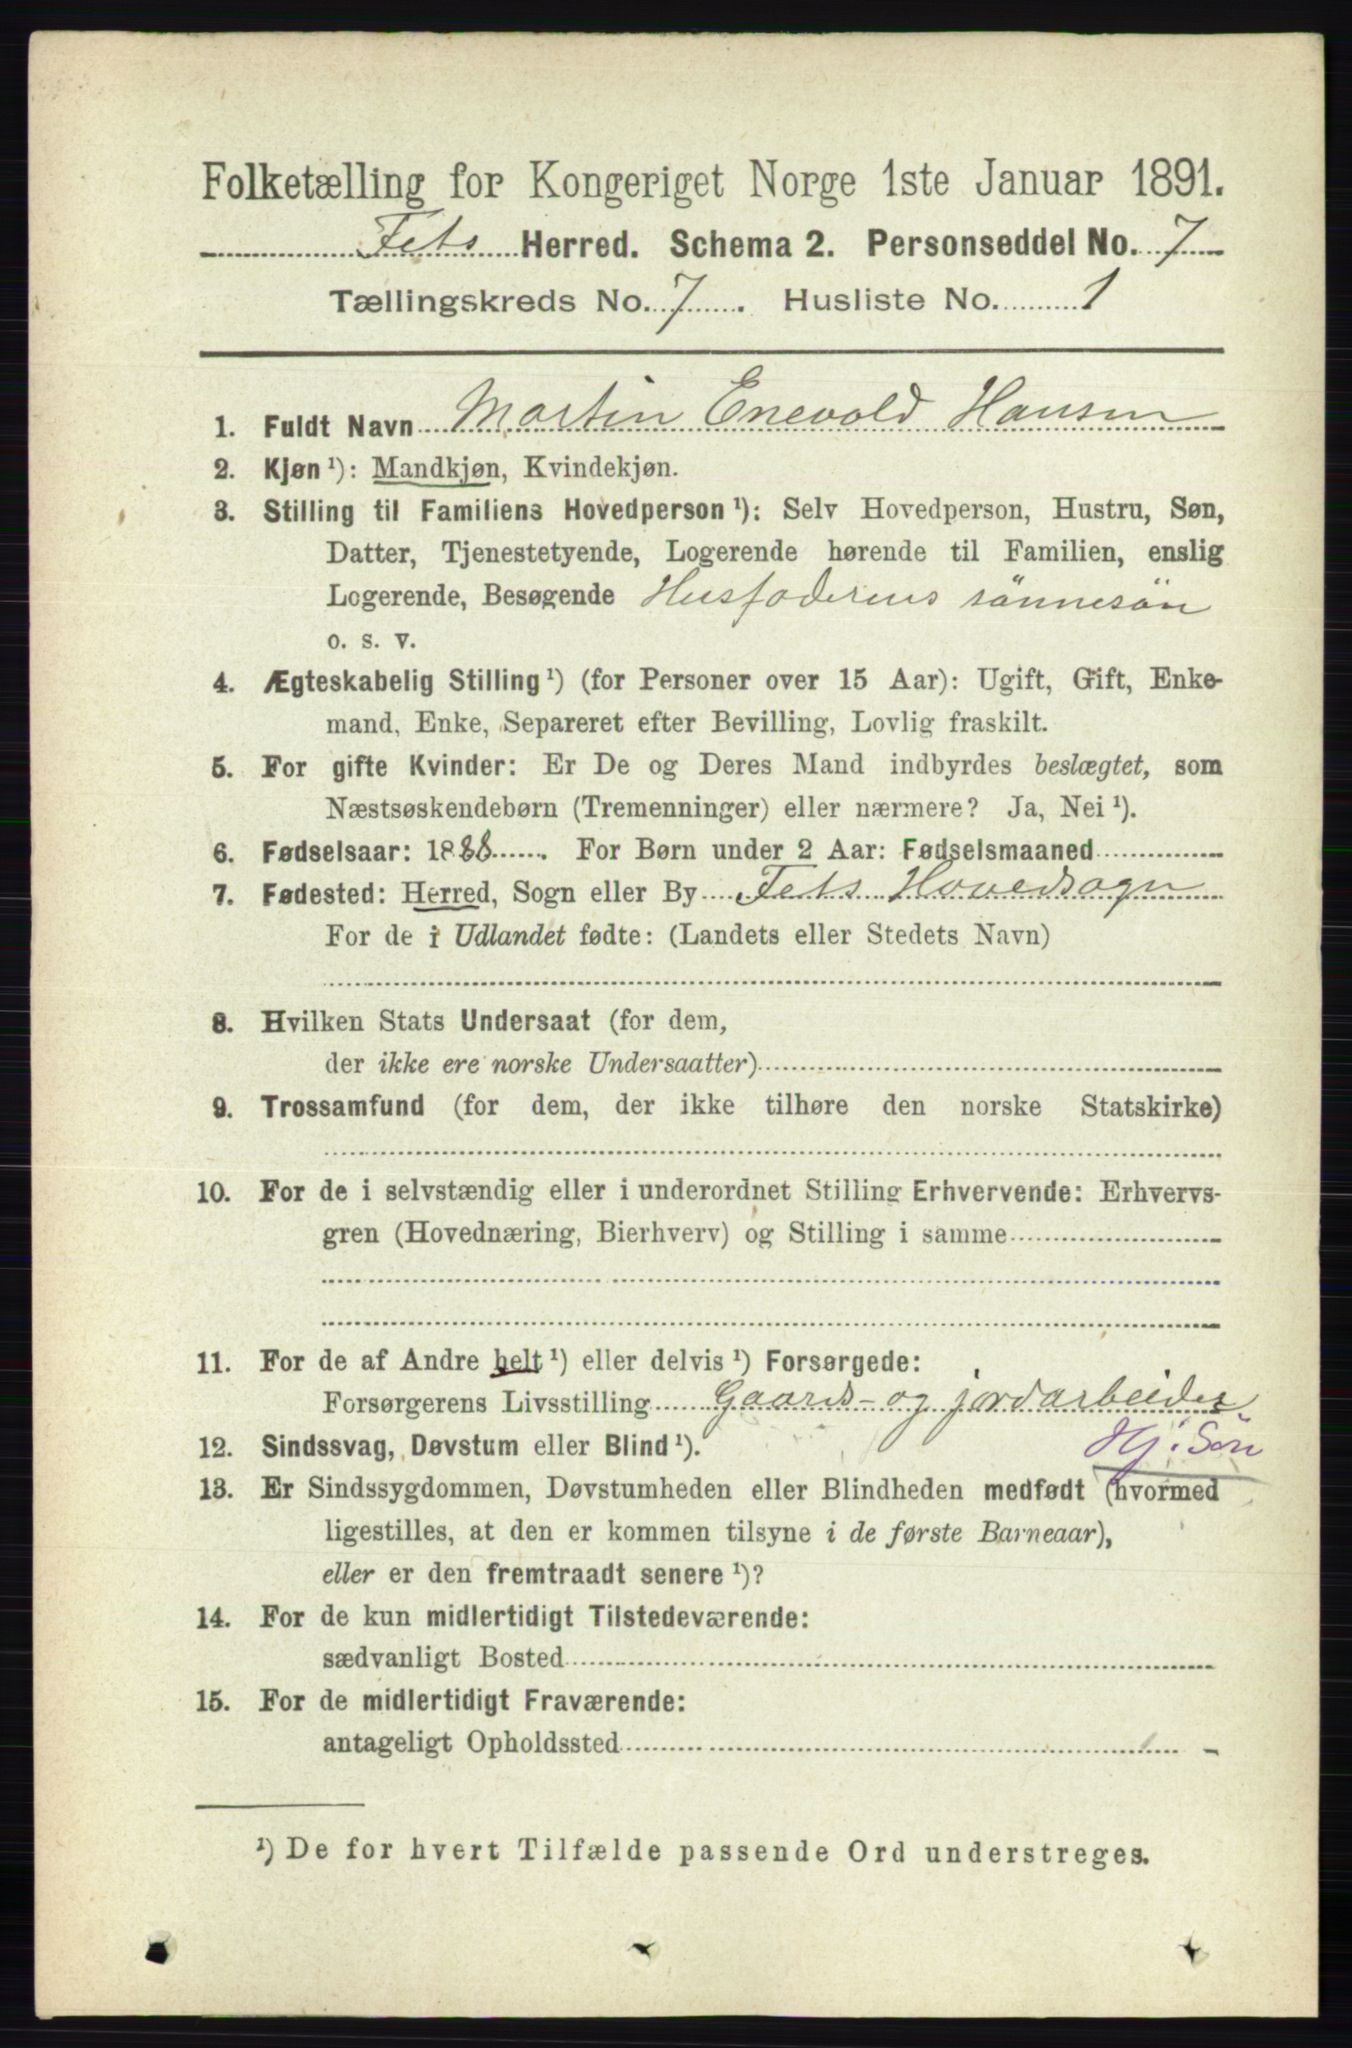 Folketælling for Kongeriget Norge 1ste Januar 1891.
Fets Herred. Schema 2. Personseddel No. 7
Tællingskreds No. 7. Husliste No. 1
1. Fuldt Navn Martin Enevold Hansen
2. Kjøn ¹): Mandkjøn, Kvindekjøn.
3. Stilling til Familiens Hovedperson ¹): Selv Hovedperson, Hustru, Søn,
Datter, Tjenestetyende, Logerende hørende til Familien, enslig
Logerende, Besøgende Husfaderens sönnesön
o. s. v.
4. Ægteskabelig Stilling ¹) (for Personer over 15 Aar): Ugift, Gift, Enke-
mand, Enke, Separeret efter Bevilling, Lovlig fraskilt.
5. For gifte Kvinder: Er De og Deres Mand indbyrdes beslægtet, som
Næstsøskendebørn (Tremenninger) eller nærmere? Ja, Nei ¹).
6. Fødselsaar: 1888. For Børn under 2 Aar: Fødselsmaaned
7. Fødested: Herred, Sogn eller By Fets Hovedsogn
For de i Udlandet fødte: (Landets eller Stedets Navn)
8. Hvilken Stats Undersaat (for dem,
der ikke ere norske Undersaatter)
9. Trossamfund (for dem, der ikke tilhøre den norske Statskirke)
10. For de i selvstændig eller i underordnet Stilling Erhvervende: Erhvervs-
gren (Hovednæring, Bierhverv) og Stilling i samme
11. For de af Andre helt ¹) eller delvis ¹) Forsørgede:
Forsørgerens Livsstilling Gaards- og jordarbeider
12. Sindssvag, Døvstum eller Blind ¹). Hj. Sön
13. Er Sindssygdommen, Døvstumheden eller Blindheden medfødt (hvormed
ligestilles, at den er kommen tilsyne i de første Barneaar),
eller er den fremtraadt senere ¹)?
14. For de kun midlertidigt Tilstedeværende:
sædvanligt Bosted
15. For de midlertidigt Fraværende:
antageligt Opholdssted
¹) De for hvert Tilfælde passende Ord understreges.